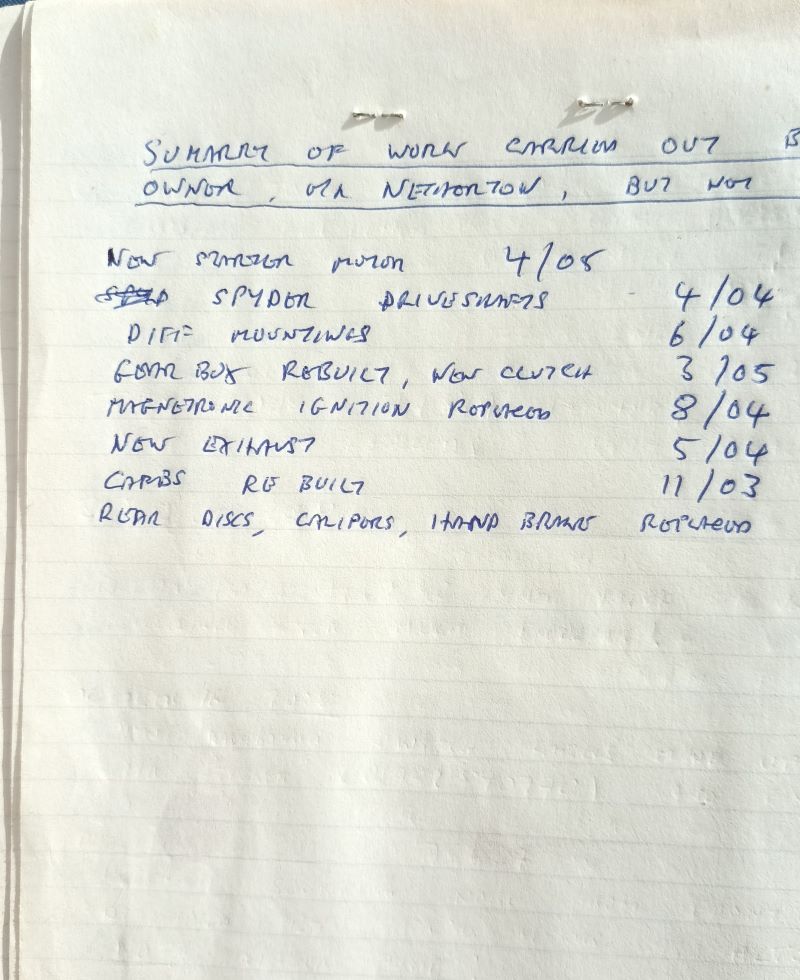 SUMARRY OF WORK CARRIED OUT B
OWNER, MR NETHERTON, BUT NOT
NEW STARTER MOTOR 4/05
SPYDER DRIVESHAFTS - 4/04
DIFF MOUNTINGS 6/04
GEAR BOX REBUILT, NEW CLUTCH 3/05
MAGNETRONIC IGNITION REPLACED 8/04
NEW EXHAUST 5/04
CARBS RE BUILT 11/03
REAR DISCS, CALIPERS, HAND BRAKE REPLACED